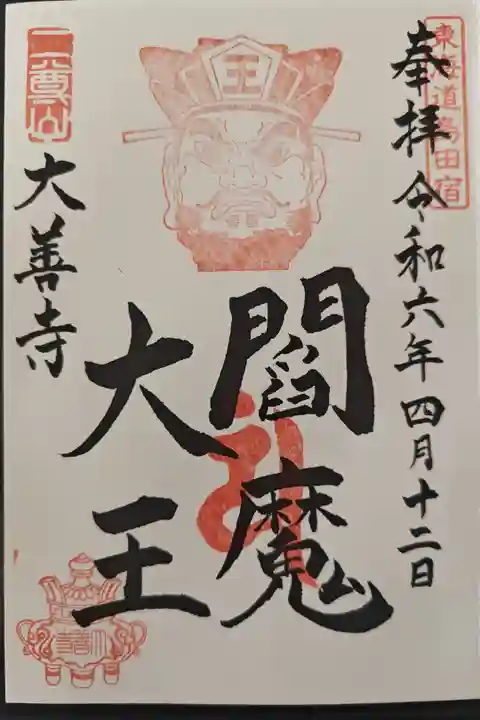 東海道島田宿
奉拝令和六年四月十二日
王
閻魔
大王
二尊山
大善寺